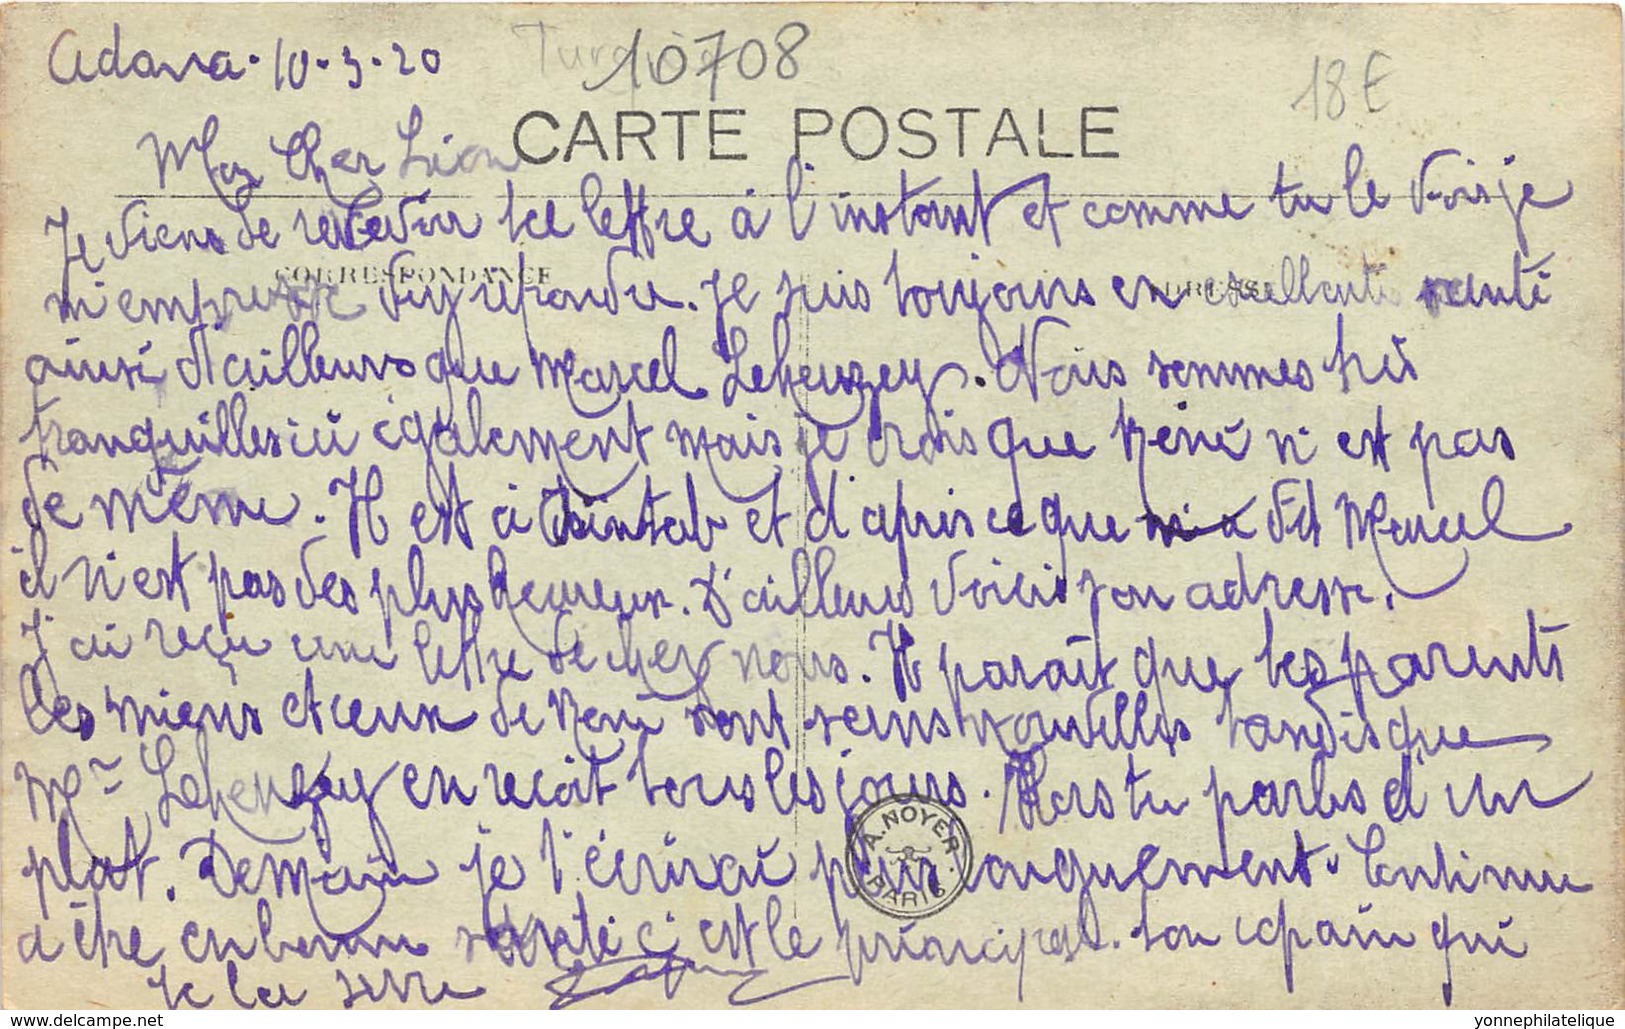 Adana. 10.3.20
Turquie
10708
18E
CARTE POSTALE
Mon Cher Léon
Je viens de recevoir ta lettre à l'instant et comme tu le vois je
CORRESPONDANCE
ADRESSE
m'empresse d'y répondre. Je suis toujours en excellente santé
ainsi d'ailleurs que Marcel Leheuzey. Nous sommes très
tranquilles ici également mais je crois que René n'est pas
de même. Il est à Aïntab et d'après ce que m'a dit Marcel
il n'est pas des plus heureux. D'ailleurs voici son adresse.
J'ai reçu une lettre de chez nous. Il parait que tes parents
les miens et ceux de René sont sans nouvelles tandis que
Mr Leheuzey en reçoit tous les jours. Alors tu parles d'un
plat. Demain je t'écrirai plus longuement. Continue
à être en bonne santé c'est le principal. Ton copain qui
te la serre
A. NOYER
PARIS
yonnephilatelie.com
yonnephilatelique